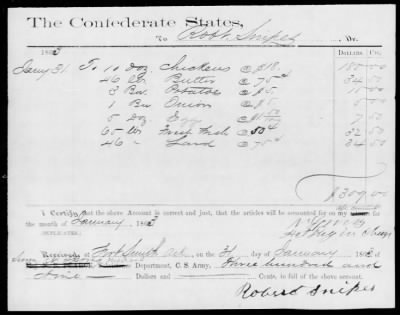 The Confederate States,
To Rob't Snipes, Dr.
1863 Dollars. Cts.
Jany 31 To 10 Doz Chickens @ $18. 180 00
46 lbs Butter @ 75 ¢ 34 50
3 Bu Potatoe @ $5. 15 00
1 Bu Onion @ $5. 5 00
5 Doz Egg @ 7 50
65 lbs Fresh Fish 50 ¢ 32 50
46 " Lard @ 75 ¢ 34 50
$309.00
I Certify that the above Account is correct and just, that the articles will be accounted for on my
the month of January 1863
(DUPLICATES.)
Received, at Fort Smith Ark, on the 31 day of January 1863
Department, C. S. Army, Three hundred and
nine Dollars and Cents, in full of the above account.
Robert Snipes